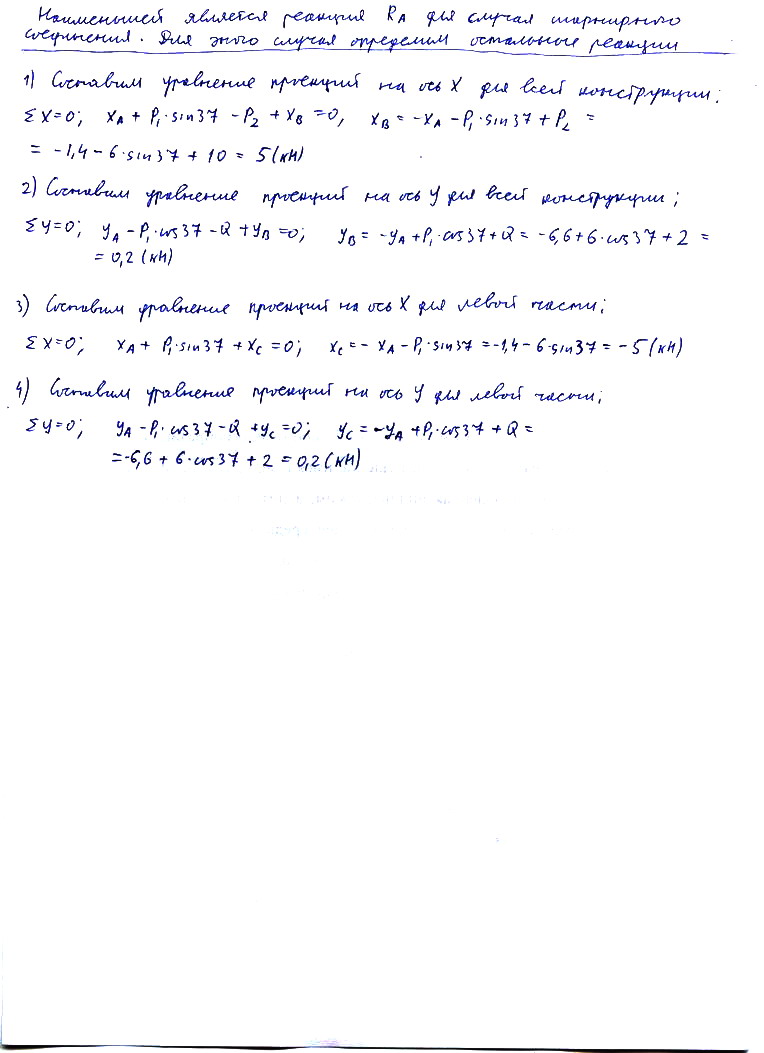 Наименьшей является реакция RA для случая шарнирного
соединения. Для этого случая определим остальные реакции
1) Составим уравнение проекций на ось X для всей конструкции:
ΣX=0; XA + P1·sin37 - P2 + XB =0, XB = -XA - P1·sin37 + P2 =
= -1,4 - 6·sin37 + 10 = 5 (кН)
2) Составим уравнение проекций на ось Y для всей конструкции;
ΣY=0; YA - P1·cos37 - Q + YB =0; YB = -YA + P1·cos37 + Q = -6,6 + 6·cos37 + 2 =
= 0,2 (кН)
3) Составим уравнение проекций на ось X для левой части;
ΣX=0; XA + P1·sin37 + XC =0; XC = - XA - P1·sin37 = -1,4 - 6·sin37 = -5 (кН)
4) Составим уравнение проекций на ось Y для левой части;
ΣY=0; YA - P1·cos37 - Q + YC =0; YC = -YA + P1·cos37 + Q =
= -6,6 + 6·cos37 + 2 = 0,2 (кН)